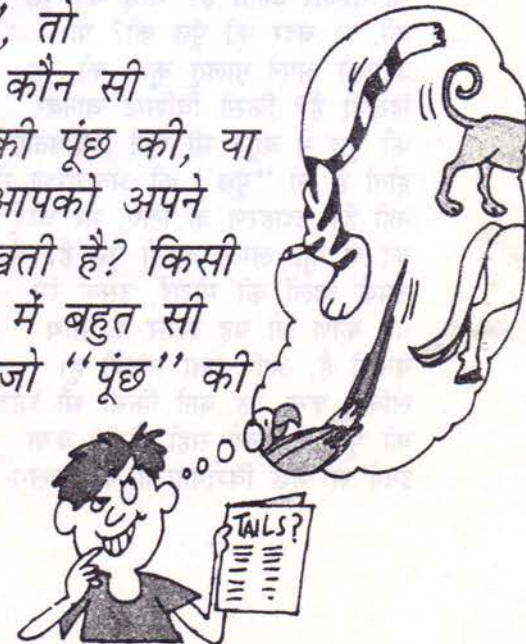 , तो
कौन सी
की पूंछ की, या
आपको अपने
है? किसी
में बहुत सी
जो "पूंछ" की
TAILS?